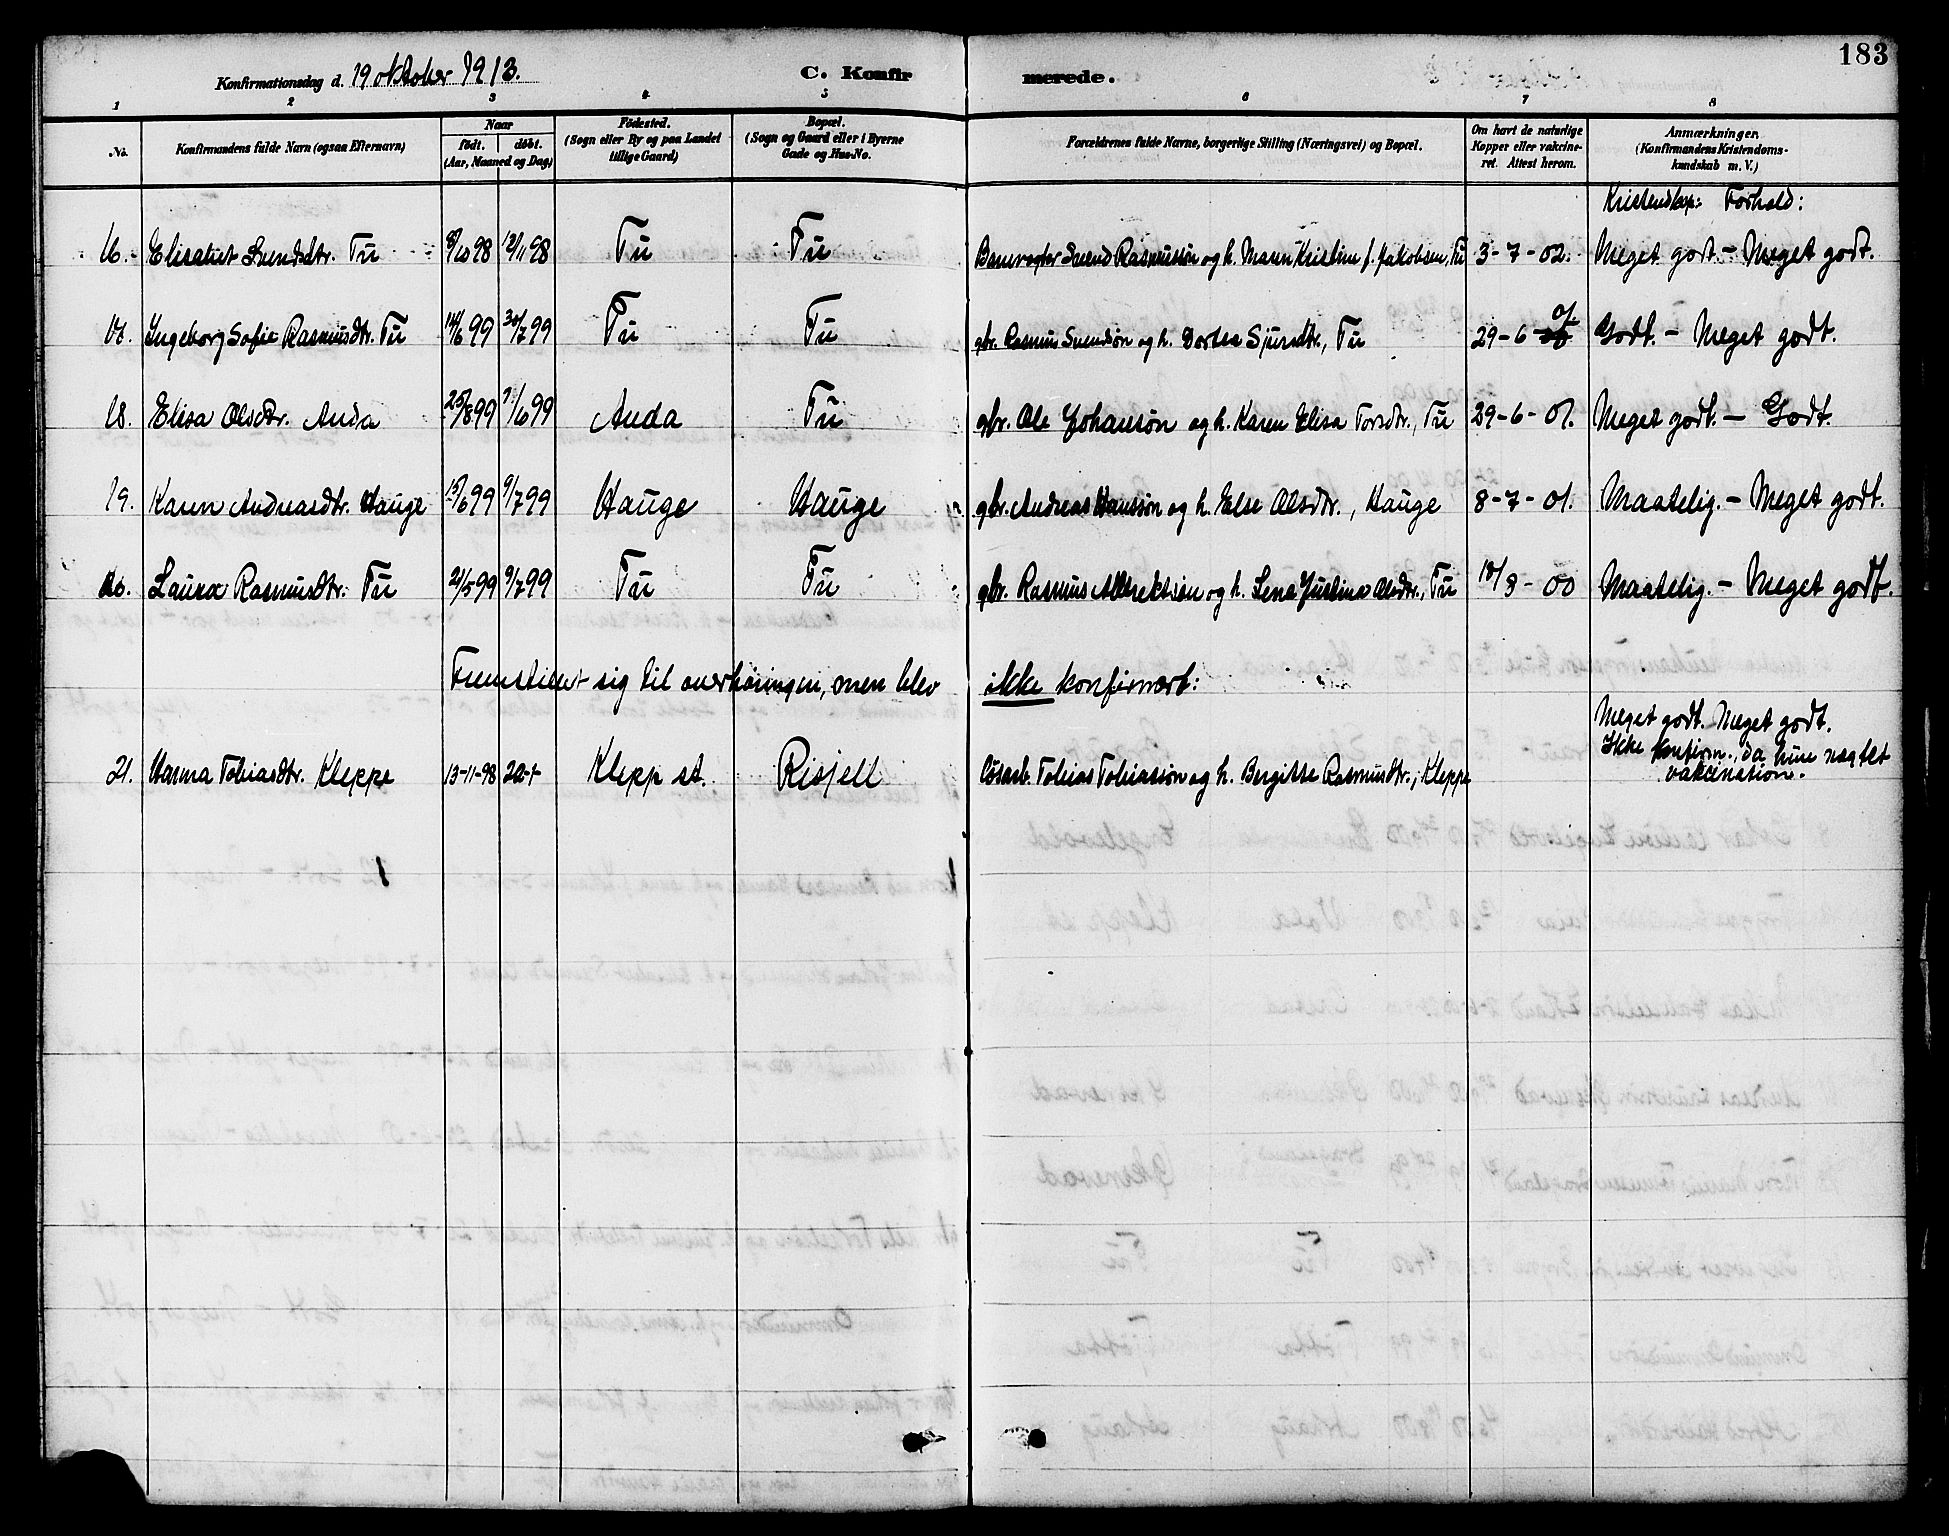 183
Konfirmationsdag d. 19 oktober 1913.
C. Konfirmerede.
1 2 3 4 5 6 7 8
No. Konfirmandens fulde Navn (ogsaa Efternavn) Naar født. døbt. (Aar, Maaned og Dag) Fødested. (Sogn eller By og paa Landet tillige Gaard) Bopæl. (Sogn og Gaard eller i Byerne Gade og Hus-No. Forældrenes fulde Navne, borgerlige Stilling (Næringsvei) og Bopæl. Om havt de naturlige Kopper eller vakcineret. Attest herom. Anmærkninger. (Konfirmandens Kristendomskundskab m. V.)
Kristendskap: Forhold:
16. Elisabet Svendsdtr. Tu 8/10 98 12/11 98 Tu Tu Banevogter Svend Rasmussøn og h. Maren Kristine f. Jakobsen, Tu 3-7-02. Meget godt - Meget godt.
17. Ingeborg Sofie Rasmusdtr. Tu 14/6 99 30/7 99 Tu Tu gbr. Rasmus Svendsøn og h. Dortea Sjursdtr., Tu 29-6-01. Godt. - Meget godt.
18. Elisa Olsdtr. Anda 25/8 99 1/10 99 Anda Tu gbr. Ole Johansøn og h. Karen Elisa Torsdtr., Tu 29-6-01. Meget godt. - Godt.
19. Karen Andreasdtr. Hauge 15/6 99 9/7 99 Hauge Hauge gbr. Andreas Hanssøn og h. Else Olsdtr., Hauge 8-7-01. Maatelig. - Meget godt.
20. Laura Rasmusdtr. Tu 21/5 99 9/7 99 Tu Tu gbr. Rasmus Albrektsøn og h. Lena Justina Olsdtr., Tu 18/8-00 Maatelig. - Meget godt.
Fremstillet sig til overhøringen, men blev ikke konfirmert:
21. Hanna Tobiasdtr. Kleppe 13-11-98 Klepp st. Risjell løsarb. Tobias Tobiassøn og h. Bergitte Rasmusdtr., Kleppe Meget godt. Meget godt.
Ikke konfirm., da hun nægtet
vakcination.